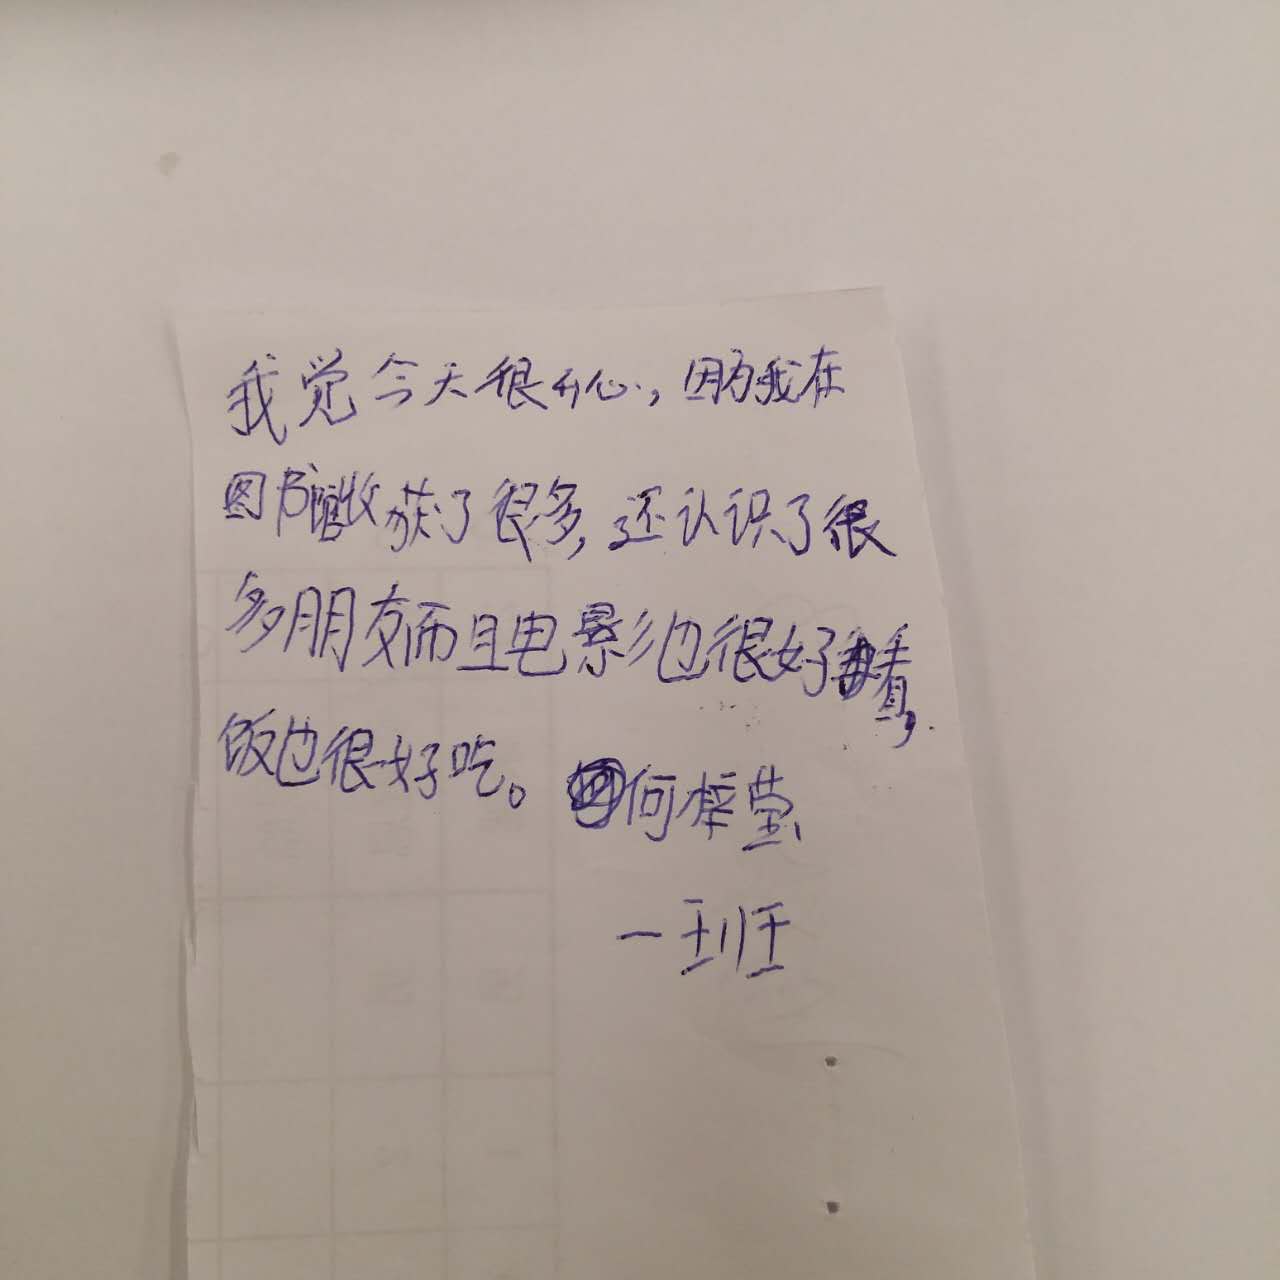 我觉今天很开心，因为我在
图书馆收获了很多，还认识了很
多朋友而且电影也很好看，
饭也很好吃。何梓莹
一班